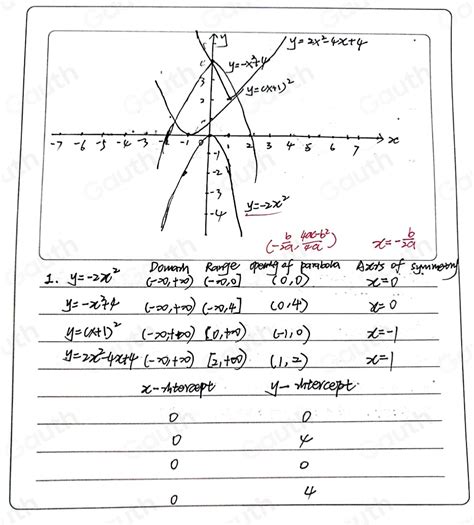 y
y=2x²-4x+4
y=-x²+4
y=(x+1)²
-7 -6 -5 -4 -3 -2 -1 0 1 2 3 4 5 6 7 x
-1
-2
-3
-4
y=-2x²
(-b/2a, 4ac-b²/4a) x=-b/2a
Domain Range opening of parabola Axis of symmetry
1. y=-2x² (-∞,+∞) (-∞,0] (0,0) x=0
y=-x²+4 (-∞,+∞) (-∞,4] (0,4) x=0
y=(x+1)² (-∞,+∞) [0,+∞) (-1,0) x=-1
y=2x²-4x+4 (-∞,+∞) [2,+∞) (1,2) x=1
x-intercept y-intercept
0 0
0 4
0 0
0 4